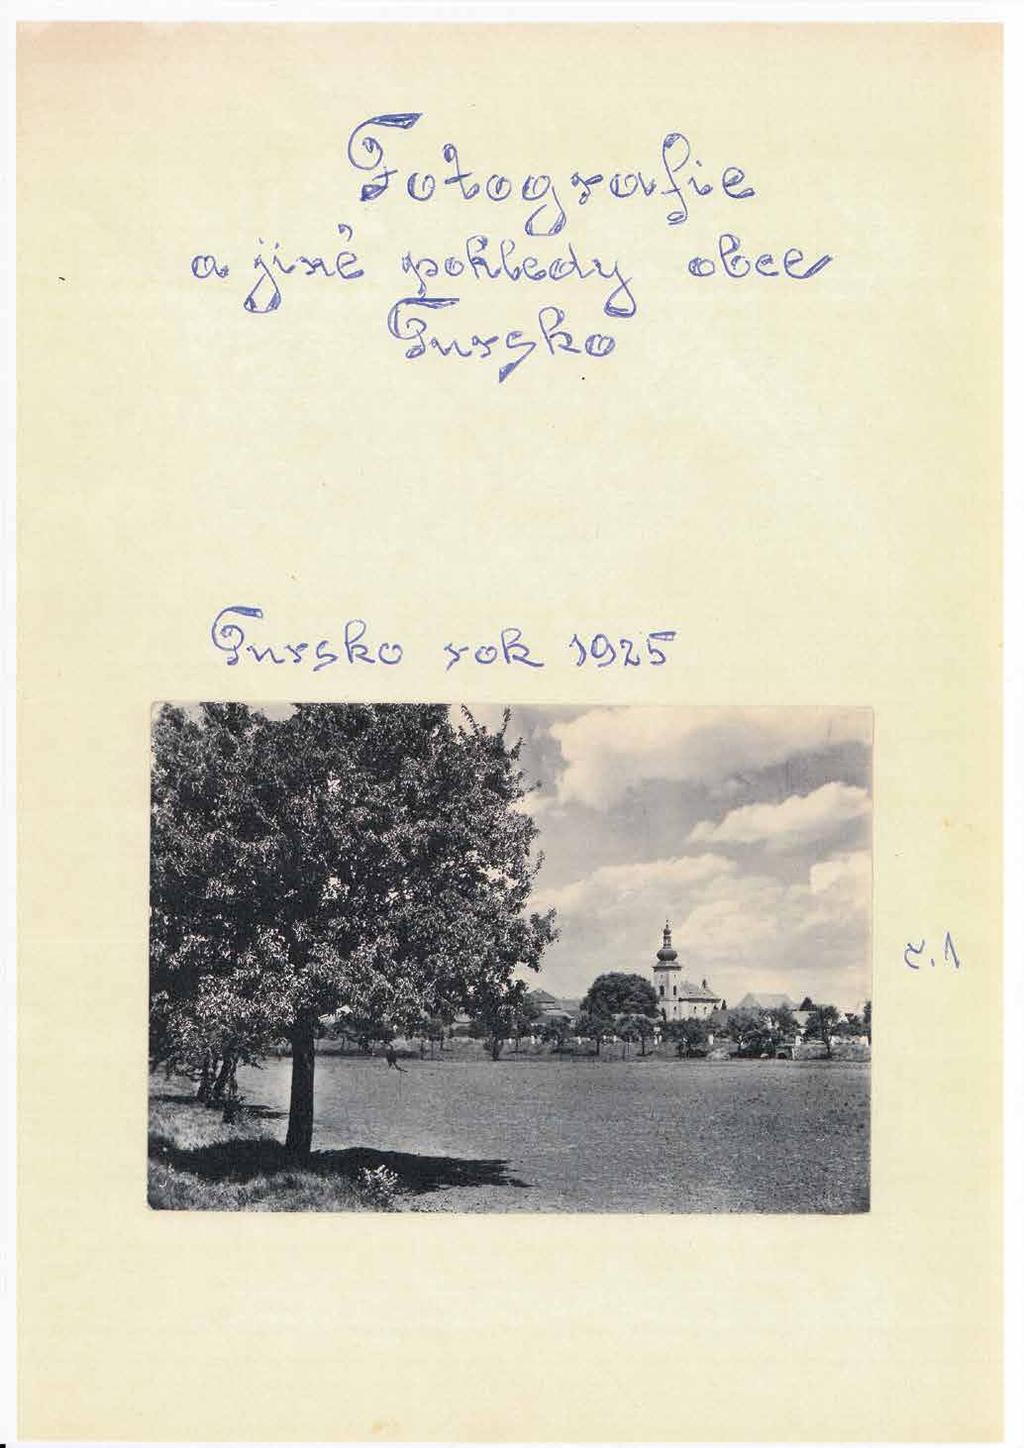 Fotografie
a jiné pohledy obce
Tursko
Tursko rok 1925
č.1